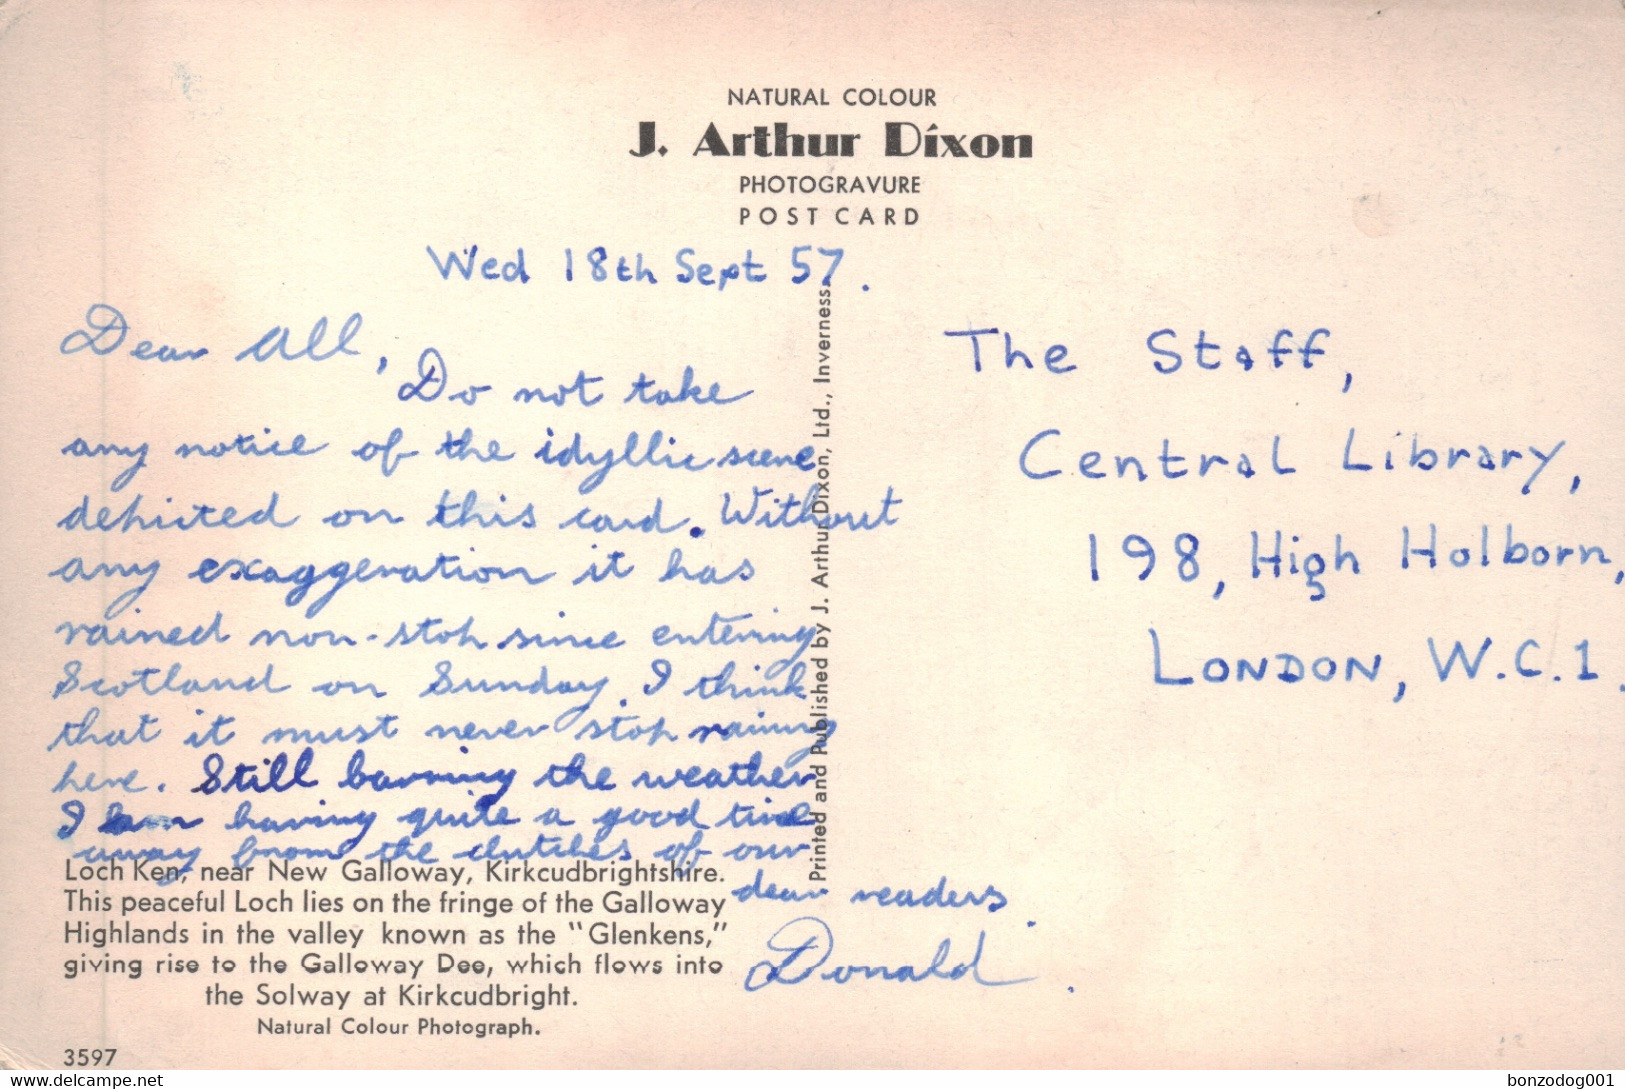 NATURAL COLOUR
J. Arthur Dixon
PHOTOGRAVURE
POST CARD
Wed 18th Sept 57.
Dear All,
Do not take
any notice of the idyllic scene
depicted on this card. Without
any exaggeration it has
rained non-stop since entering
Scotland on Sunday. I think
that it must never stop raining
here. Still barring the weather
I am having quite a good time
away from the clutches of our
dear readers.
Donald.
The Staff,
Central Library,
198, High Holborn,
LONDON, W.C.1.
Printed and Published by J. Arthur Dixon, Ltd., Inverness.
Loch Ken, near New Galloway, Kirkcudbrightshire.
This peaceful Loch lies on the fringe of the Galloway
Highlands in the valley known as the "Glenkens,"
giving rise to the Galloway Dee, which flows into
the Solway at Kirkcudbright.
Natural Colour Photograph.
3597
www.delcampe.net
bonzodog001